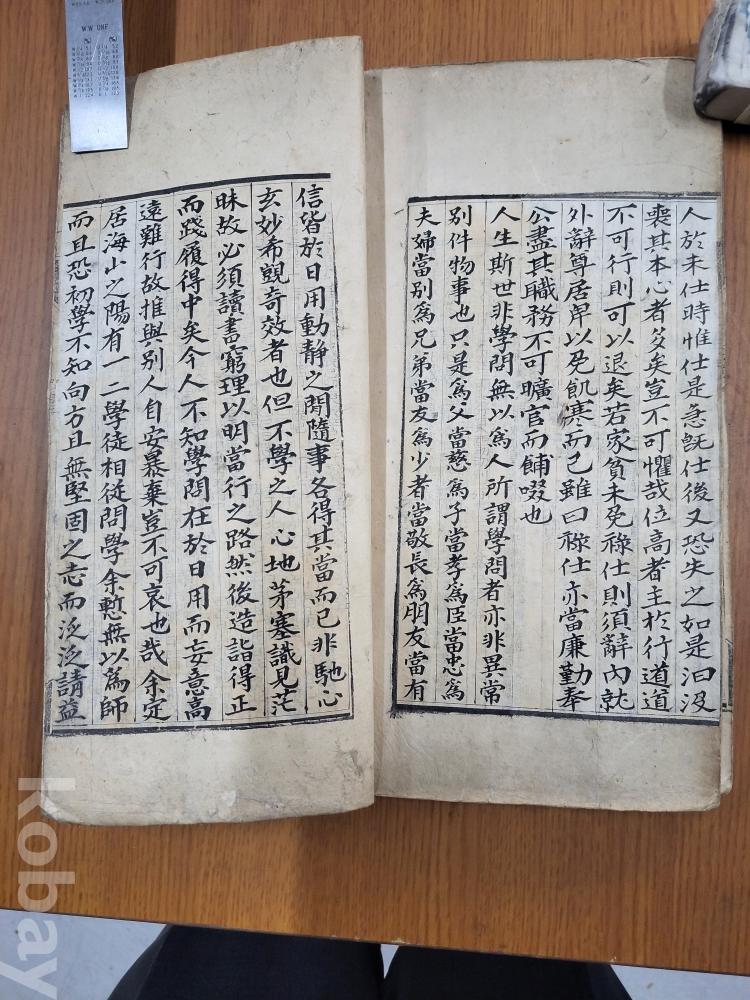 人於未仕時惟仕是急旣仕後又恐失之如是汩沒
喪其本心者多矣豈不可懼哉位高者主於行道道
不可行則可以退矣若家貧未免祿仕則須辭內就
外辭尊居卑以免飢寒而已雖曰祿仕亦當廉勤奉
公盡其職務不可曠官而餔啜也
人生斯世非學問無以爲人所謂學問者亦非異常
別件物事也只是爲父當慈爲子當孝爲臣當忠爲
夫婦當別爲兄弟當友爲少者當敬長爲朋友當有
信皆於日用動靜之間隨事各得其當而已非馳心
玄妙希覬奇效者也但不學之人心地茅塞識見茫
昧故必須讀書窮理以明當行之路然後造詣得正
而踐履得中矣今人不知學問在於日用而妄意高
遠難行故推與別人自安暴棄豈不可哀也哉余定
居海山之陽有一二學徒相從問學余慙無以爲師
而且恐初學不知向方且無堅固之志而泛泛請益
kobay